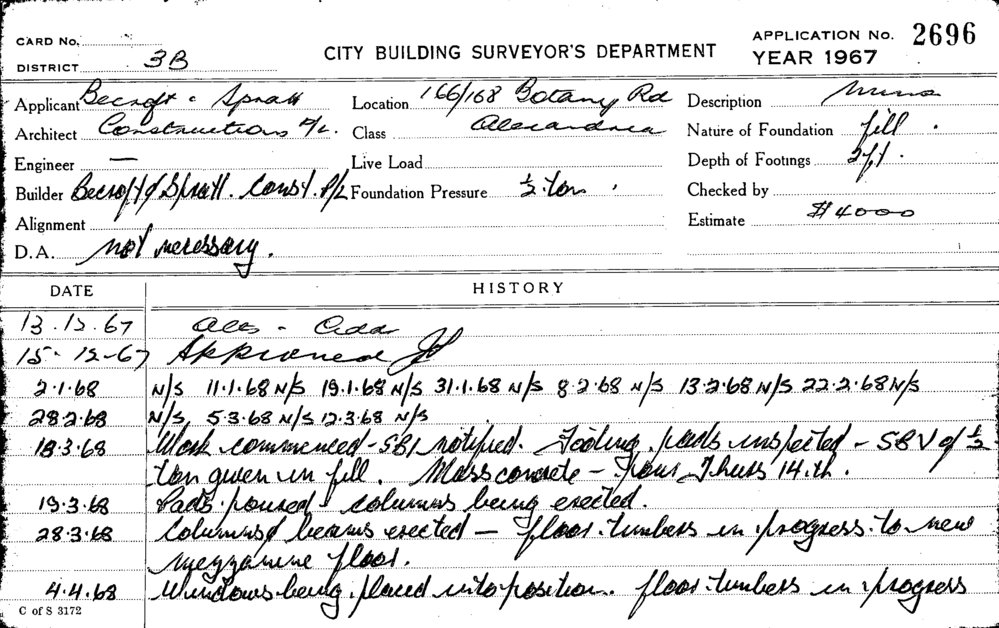 CARD No.
APPLICATION No. 2696
DISTRICT 3B
CITY BUILDING SURVEYOR'S DEPARTMENT
YEAR 1967
Applicant Becroft & Spratt Location 166/168 Botany Rd Description
Architect Constructions P/L. Class Alexandria Nature of Foundation fill.
Engineer — Live Load Depth of Footings 2ft.
Builder Becroft & Spratt. Const. P/L Foundation Pressure ½ ton. Checked by
Alignment Estimate $4000
D.A. not necessary.
DATE HISTORY
13.12.67 Alts - Adds
15-12-67 Approved
2.1.68 N/S 11.1.68 N/S 19.1.68 N/S 31.1.68 N/S 8.2.68 N/S 13.2.68 N/S 22.2.68 N/S
28.2.68 N/S 5.3.68 N/S 12.3.68 N/S
18.3.68 Work commenced - SBI notified. Footing pads inspected - SBV of ½
ton given in fill. Mass concrete - pour Thurs 14.th.
19.3.68 Pads poured - columns being erected.
28.3.68 Columns & beams erected — floor timbers in progress to new
mezzanine floor.
4.4.68 Windows being placed into position. floor timbers in progress
C of S 3172